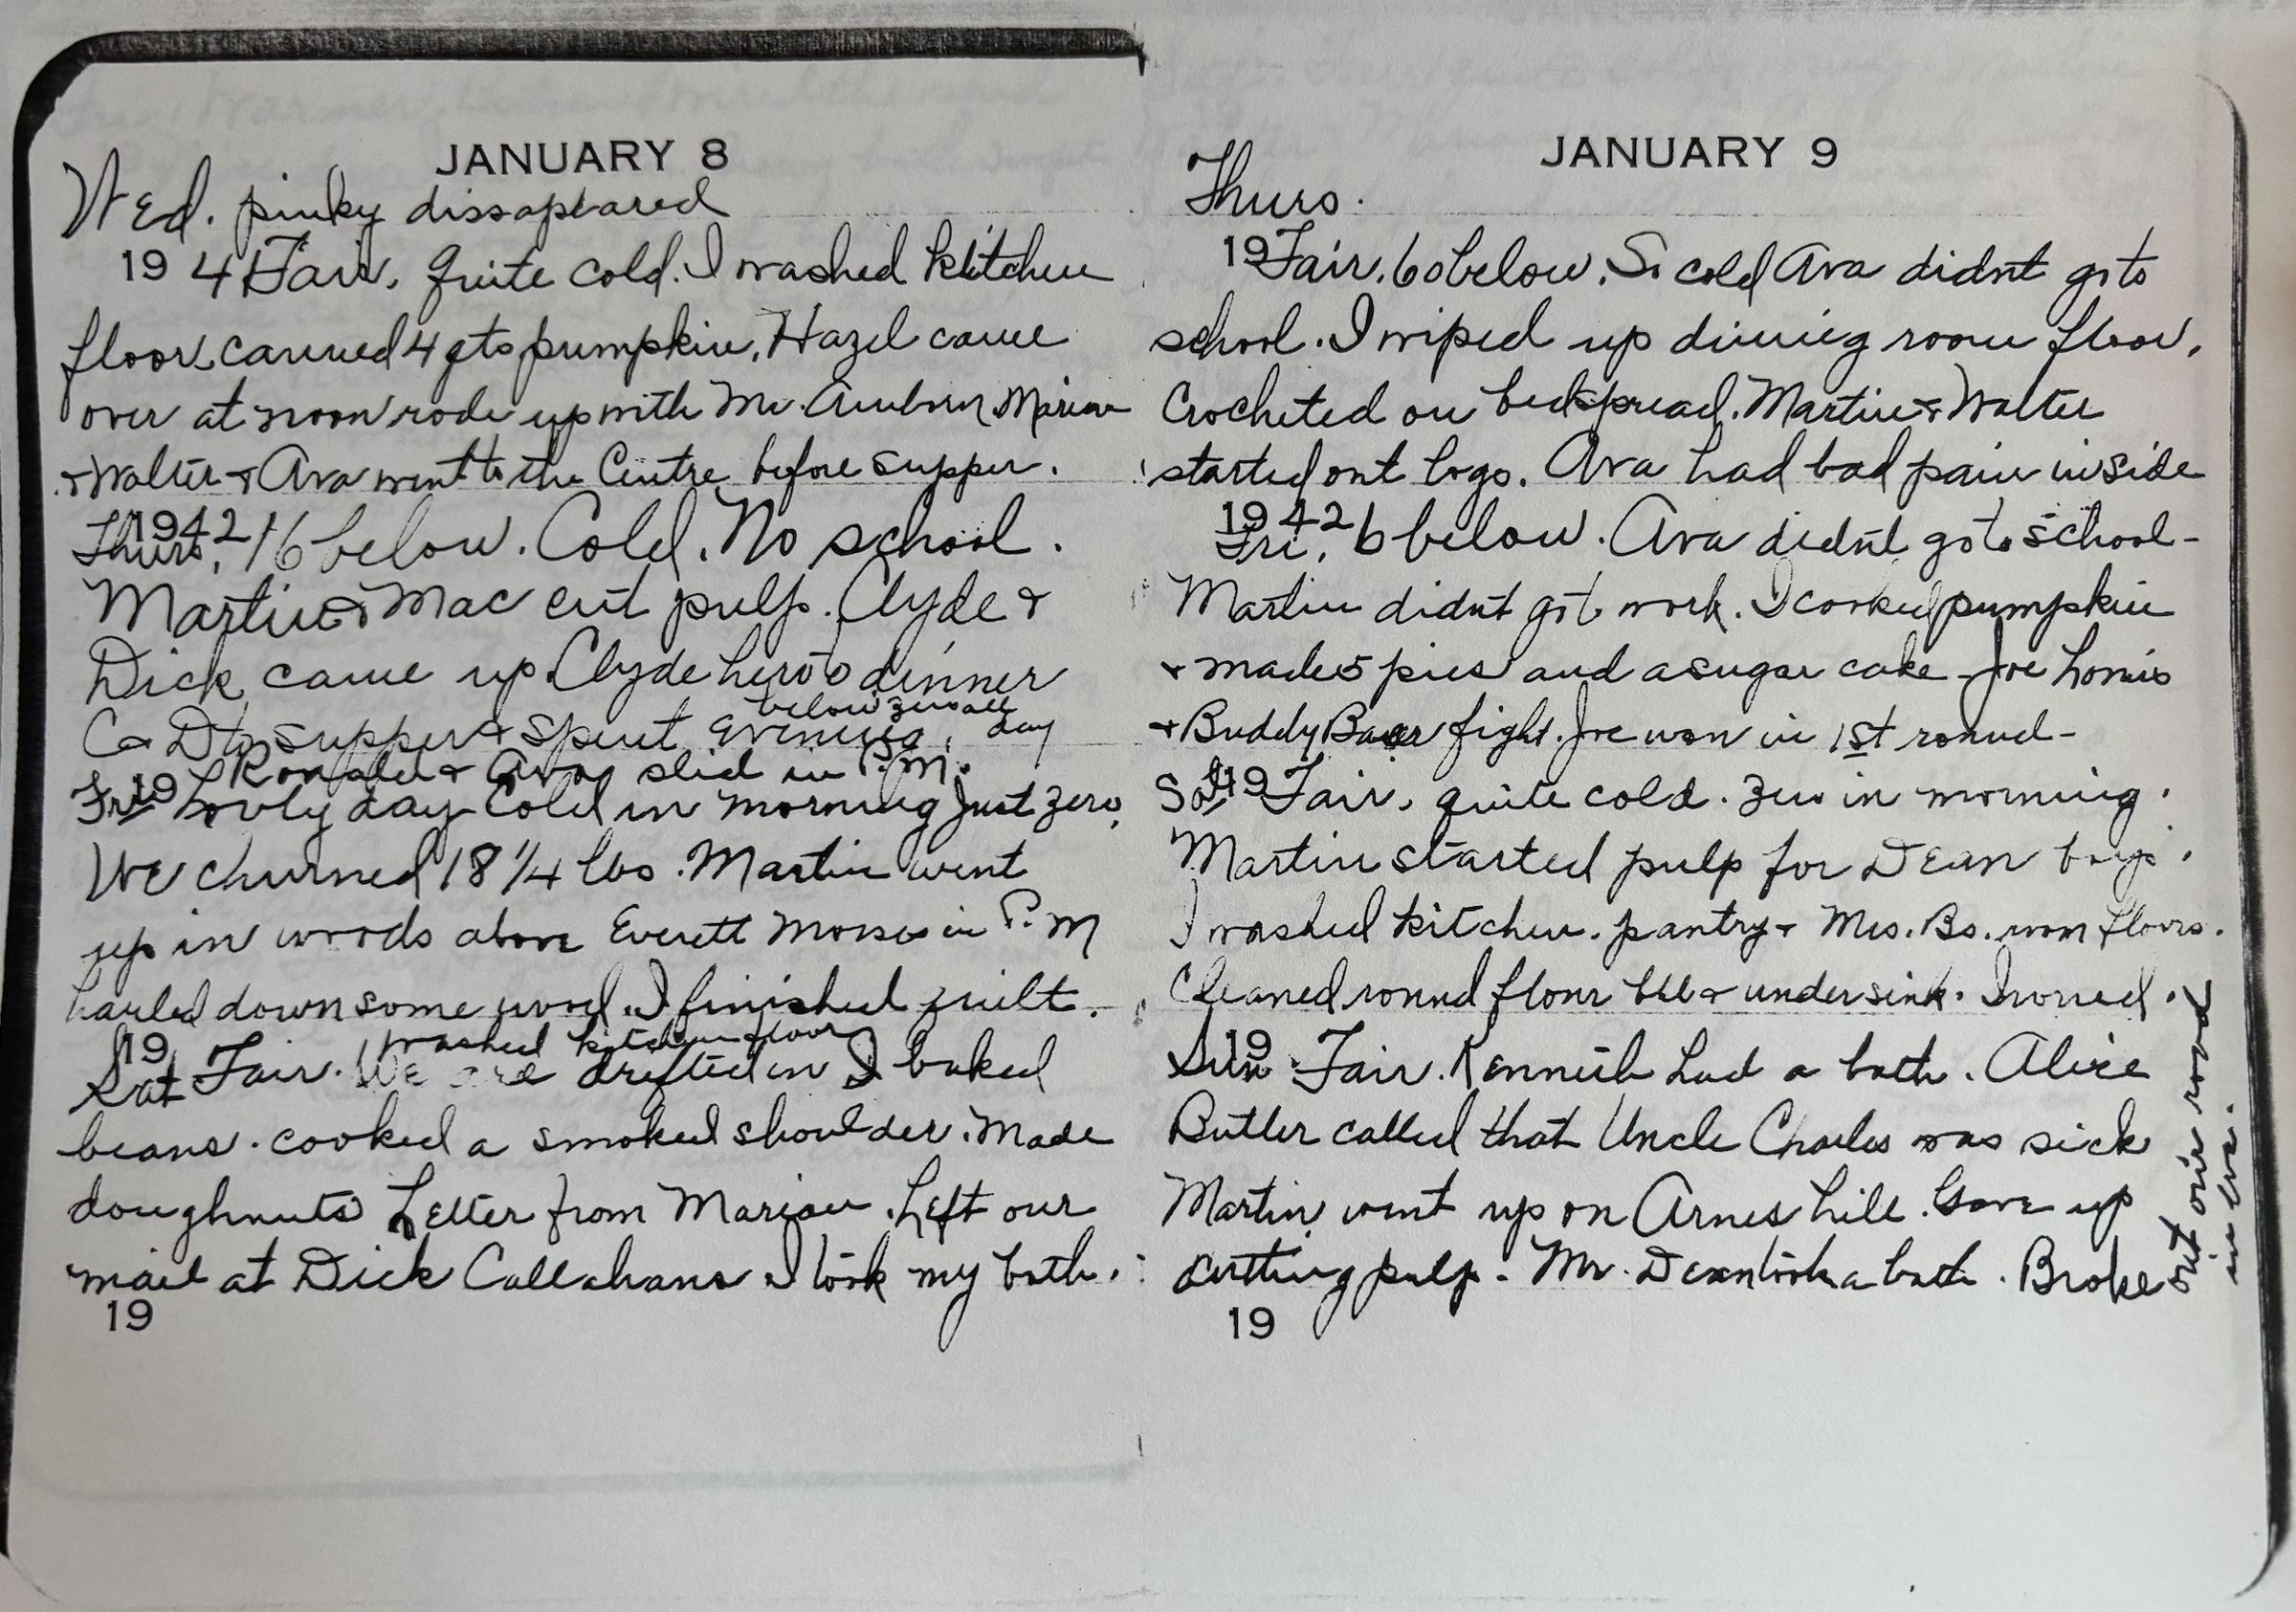 JANUARY 8
Wed. pinky dissapeared
19 41 Fair. Quite cold. I washed kitchen
floor, canned 4 qts pumpkin, Hazel came
over at noon rode up with Mr. Marion
+ Walter + Ava went to the Centre before supper.
1942
Thurs, 16 below. Cold. No school.
Martin + Mac cut pulp. Clyde +
Dick came up Clyde here to dinner
C + D to supper + spent evening, below zero all day
Ronald + Ava slid in P.M.
Fri 19 Lovly day Cold in morning just zero,
We churned 18 1/4 lbs. Martin went
up in woods above Everett Morses in P.M
hauled down some wood. I finished quilt.
19 washed kitchen floor
Sat Fair. We are drifted in I baked
beans. cooked a smoked shoulder. Made
doughnuts Letter from Marion. Left our
mail at Dick Callahans I took my bath.
19
JANUARY 9
Thurs.
19 Fair, 6 below. So cold Ava didnt go to
school. I wiped up dining room floor.
Crocheted on bedspread. Martin + Walter
started out logs. Ava had bad pain in side
1942
Fri, 6 below. Ava didnt go to school-
Martin didnt go to work. I cooked pumpkin
+ made 5 pies and a sugar cake - Joe Louis
+ Buddy Baer fight. Joe won in 1st round-
Sat 19 Fair, quite cold. Zero in morning.
Martin started pulp for Dean boys.
I washed kitchen. pantry + Mrs. Bs. room floors.
Cleaned round flour bbl + under sink. Ironed.
19
Sun Fair. Kenneth had a bath. Alice
Butler called that Uncle Charles was sick
Martin went up on Arnes hill. Gave up
cutting pulp. Mr. Dean took a bath. Broke
out our road
in eve.
19